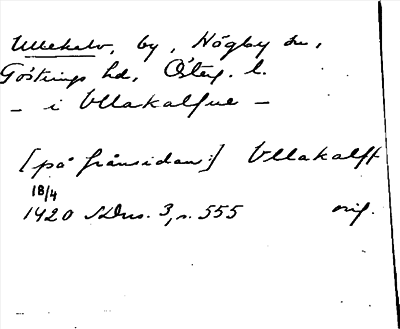 Ullekalv, by, Högby sn,
Göstrings hd, Östg. l.
– i Ullakalfue –
[på frånsidan:] Ullakalff
18/4
1420 SDns. 3, s. 555 orig.